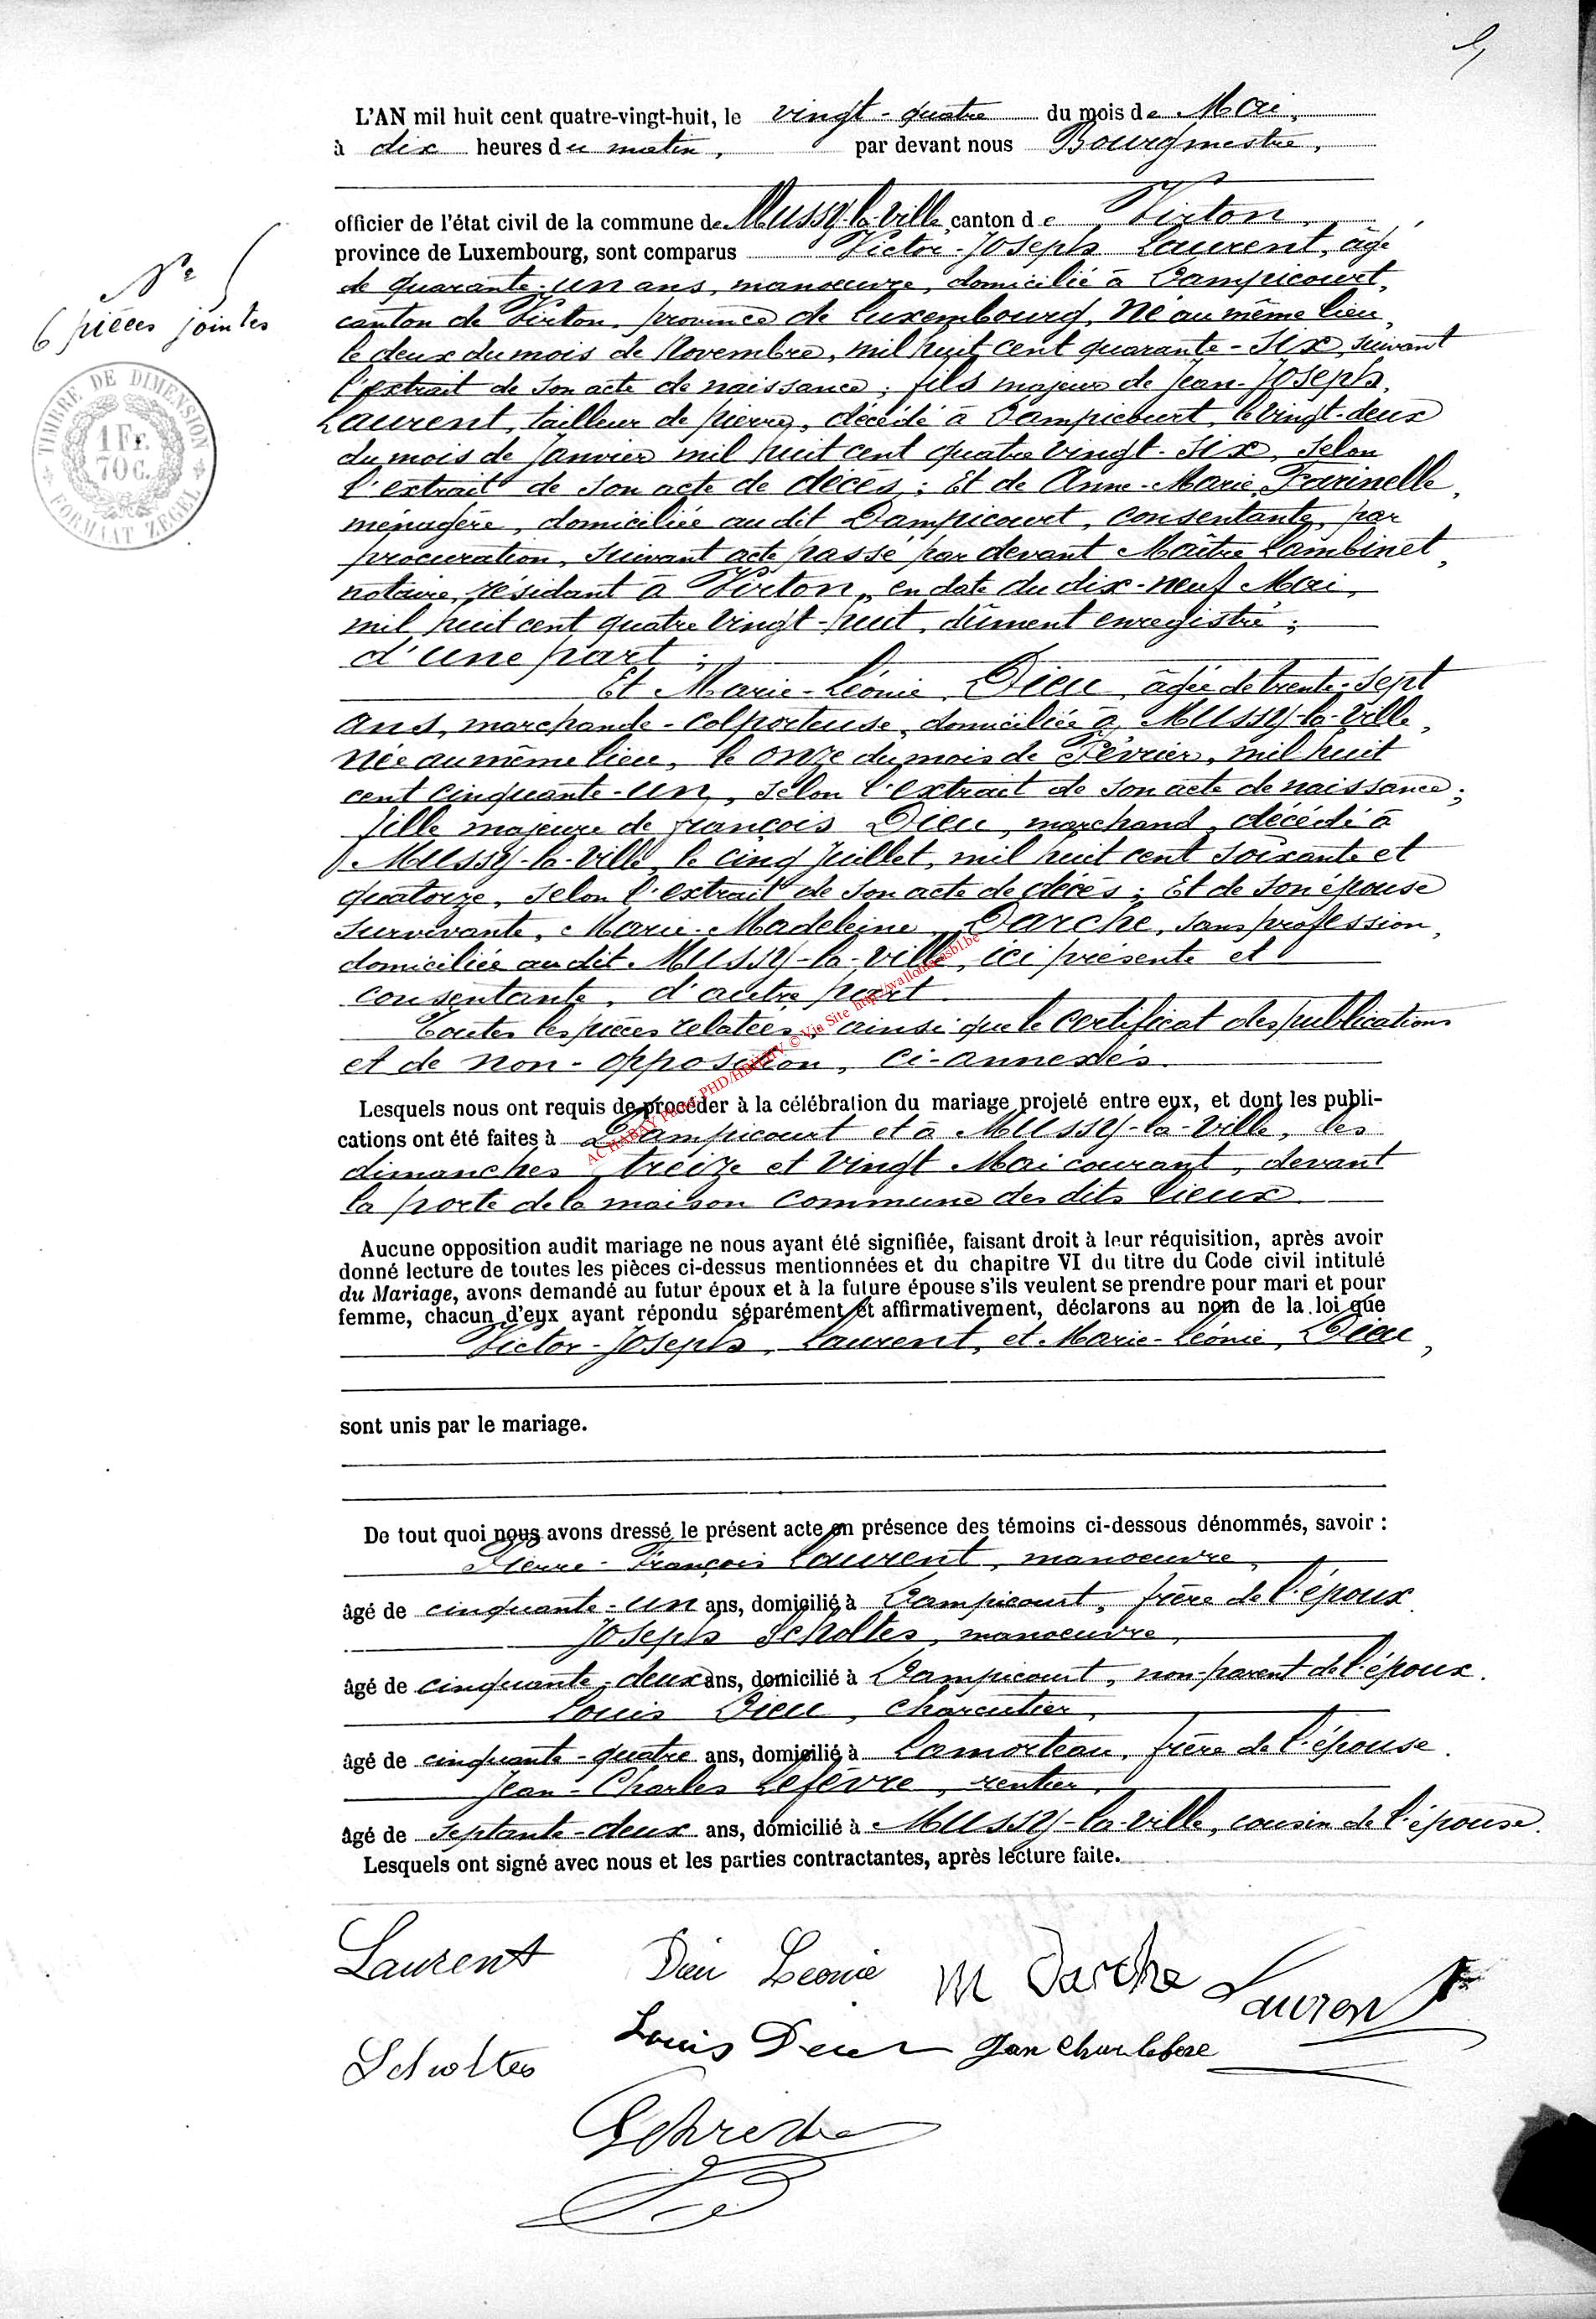 5
L'AN mil huit cent quatre-vingt-huit, le vingt-quatre du mois de Mai,
à dix heures du matin, par devant nous Bourgmestre,
officier de l'état civil de la commune de Mussy-la-Ville, canton de Virton,
province de Luxembourg, sont comparus Victor-Joseph Laurent, âgé
de quarante-un ans, manoeuvre, domicilié à Dampicourt,
canton de Virton, province de Luxembourg, Né au même lieu,
le deux du mois de Novembre, mil huit cent quarante-six, suivant
l'extrait de son acte de naissance; fils majeur de Jean-Joseph,
Laurent, tailleur de pierres, décédé à Dampicourt, le vingt-deux
du mois de Janvier mil huit cent quatre vingt-six, selon
l'extrait de son acte de décès; Et de Anne-Marie Farinelle,
ménagère, domiciliée audit Dampicourt, consentante, par
procuration, suivant acte passé par devant Maître Lambinet,
notaire, résidant à Virton, en date du dix-neuf Mai,
mil huit cent quatre vingt-huit, dûment enregistré;
d'une part;
Et Marie-Léonie, Dieu, âgée de trente-sept
ans, marchande-colporteuse, domiciliée à Mussy-la-Ville,
Née au même lieu, le onze du mois de Février, mil huit
cent cinquante-un, selon l'extrait de son acte de naissance;
fille majeure de François Dieu, marchand, décédé à
Mussy-la-Ville, le cinq Juillet, mil huit cent soixante et
quatorze, selon l'extrait de son acte de décès; Et de son épouse
survivante, Marie-Madeleine, Darche, sans profession,
domiciliée au dit Mussy-la-Ville, ici présente et
consentante, d'autre part.
Toutes les pièces relatées, ainsi que le certificat des publications
et de non-opposition, ci-annexés.
Lesquels nous ont requis de procéder à la célébration du mariage projeté entre eux, et dont les publi-
cations ont été faites à Dampicourt et à Mussy-la-Ville, les
dimanches treize et vingt Mai courant, devant
la porte de la maison commune des dits lieux.
Aucune opposition audit mariage ne nous ayant été signifiée, faisant droit à leur réquisition, après avoir
donné lecture de toutes les pièces ci-dessus mentionnées et du chapitre VI du titre du Code civil intitulé
du Mariage, avons demandé au futur époux et à la future épouse s'ils veulent se prendre pour mari et pour
femme, chacun d'eux ayant répondu séparément et affirmativement, déclarons au nom de la loi que
Victor-Joseph, Laurent, et Marie-Léonie, Dieu,
sont unis par le mariage.
De tout quoi nous avons dressé le présent acte en présence des témoins ci-dessous dénommés, savoir :
Pierre-François Laurent, manoeuvre,
âgé de cinquante-un ans, domicilié à Dampicourt, frère de l'époux.
Joseph Scholtes, manoeuvre,
âgé de cinquante-deux ans, domicilié à Dampicourt, non-parent de l'époux.
Louis Dieu, charcutier,
âgé de cinquante-quatre ans, domicilié à Lamorteau, frère de l'épouse.
Jean-Charles Lefèvre, rentier,
âgé de septante-deux ans, domicilié à Mussy-la-Ville, cousin de l'épouse.
Lesquels ont signé avec nous et les parties contractantes, après lecture faite.
Laurent Dieu Leonie M Darche Laurent
Scholtes Louis Dieu Jan
N° 5
6 pièces jointes
TIMBRE DE DIMENSION
1 Fr.
70 C.
FORMAAT ZEGEL
AC HABAY Photo PHD/HBH/HV © Via Site http://wallonia-asbl.be